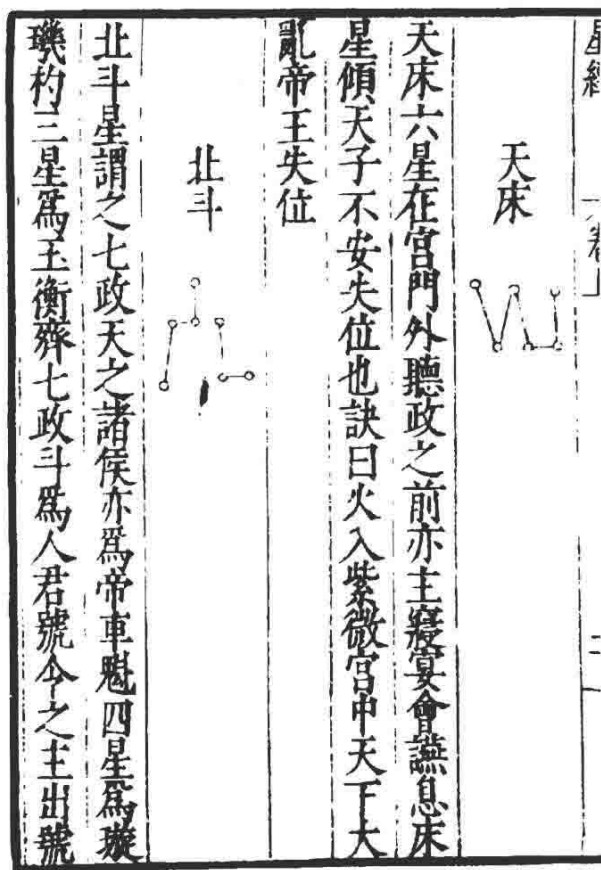 星經 卷上 二
天床
天床六星在宮門外聽政之前亦主寢宴會讌息床
星傾天子不安失位也訣曰火入紫微宮中天下大
亂帝王失位
北斗
北斗星謂之七政天之諸侯亦爲帝車魁四星爲璇
璣杓三星爲玉衡齊七政斗爲人君號令之主出號